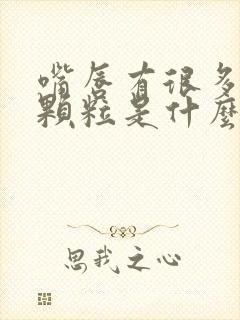 嘴唇有很多
顆粒是什麼
思我之心